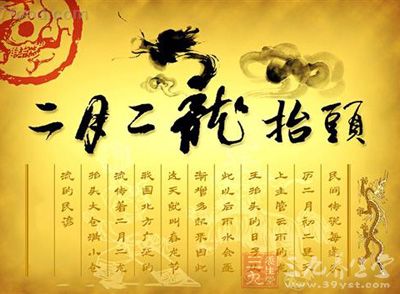 二月二龍抬頭
民间传说每逢
历二月初二是
上主管云雨的
王抬头的日子
此以后雨水会逐
渐增多起来因此
这天就叫春龙节
我国北方广泛的
流传着二月二龙
抬头大仓满小仓
流的民谚
三九养生堂
www.39yst.com